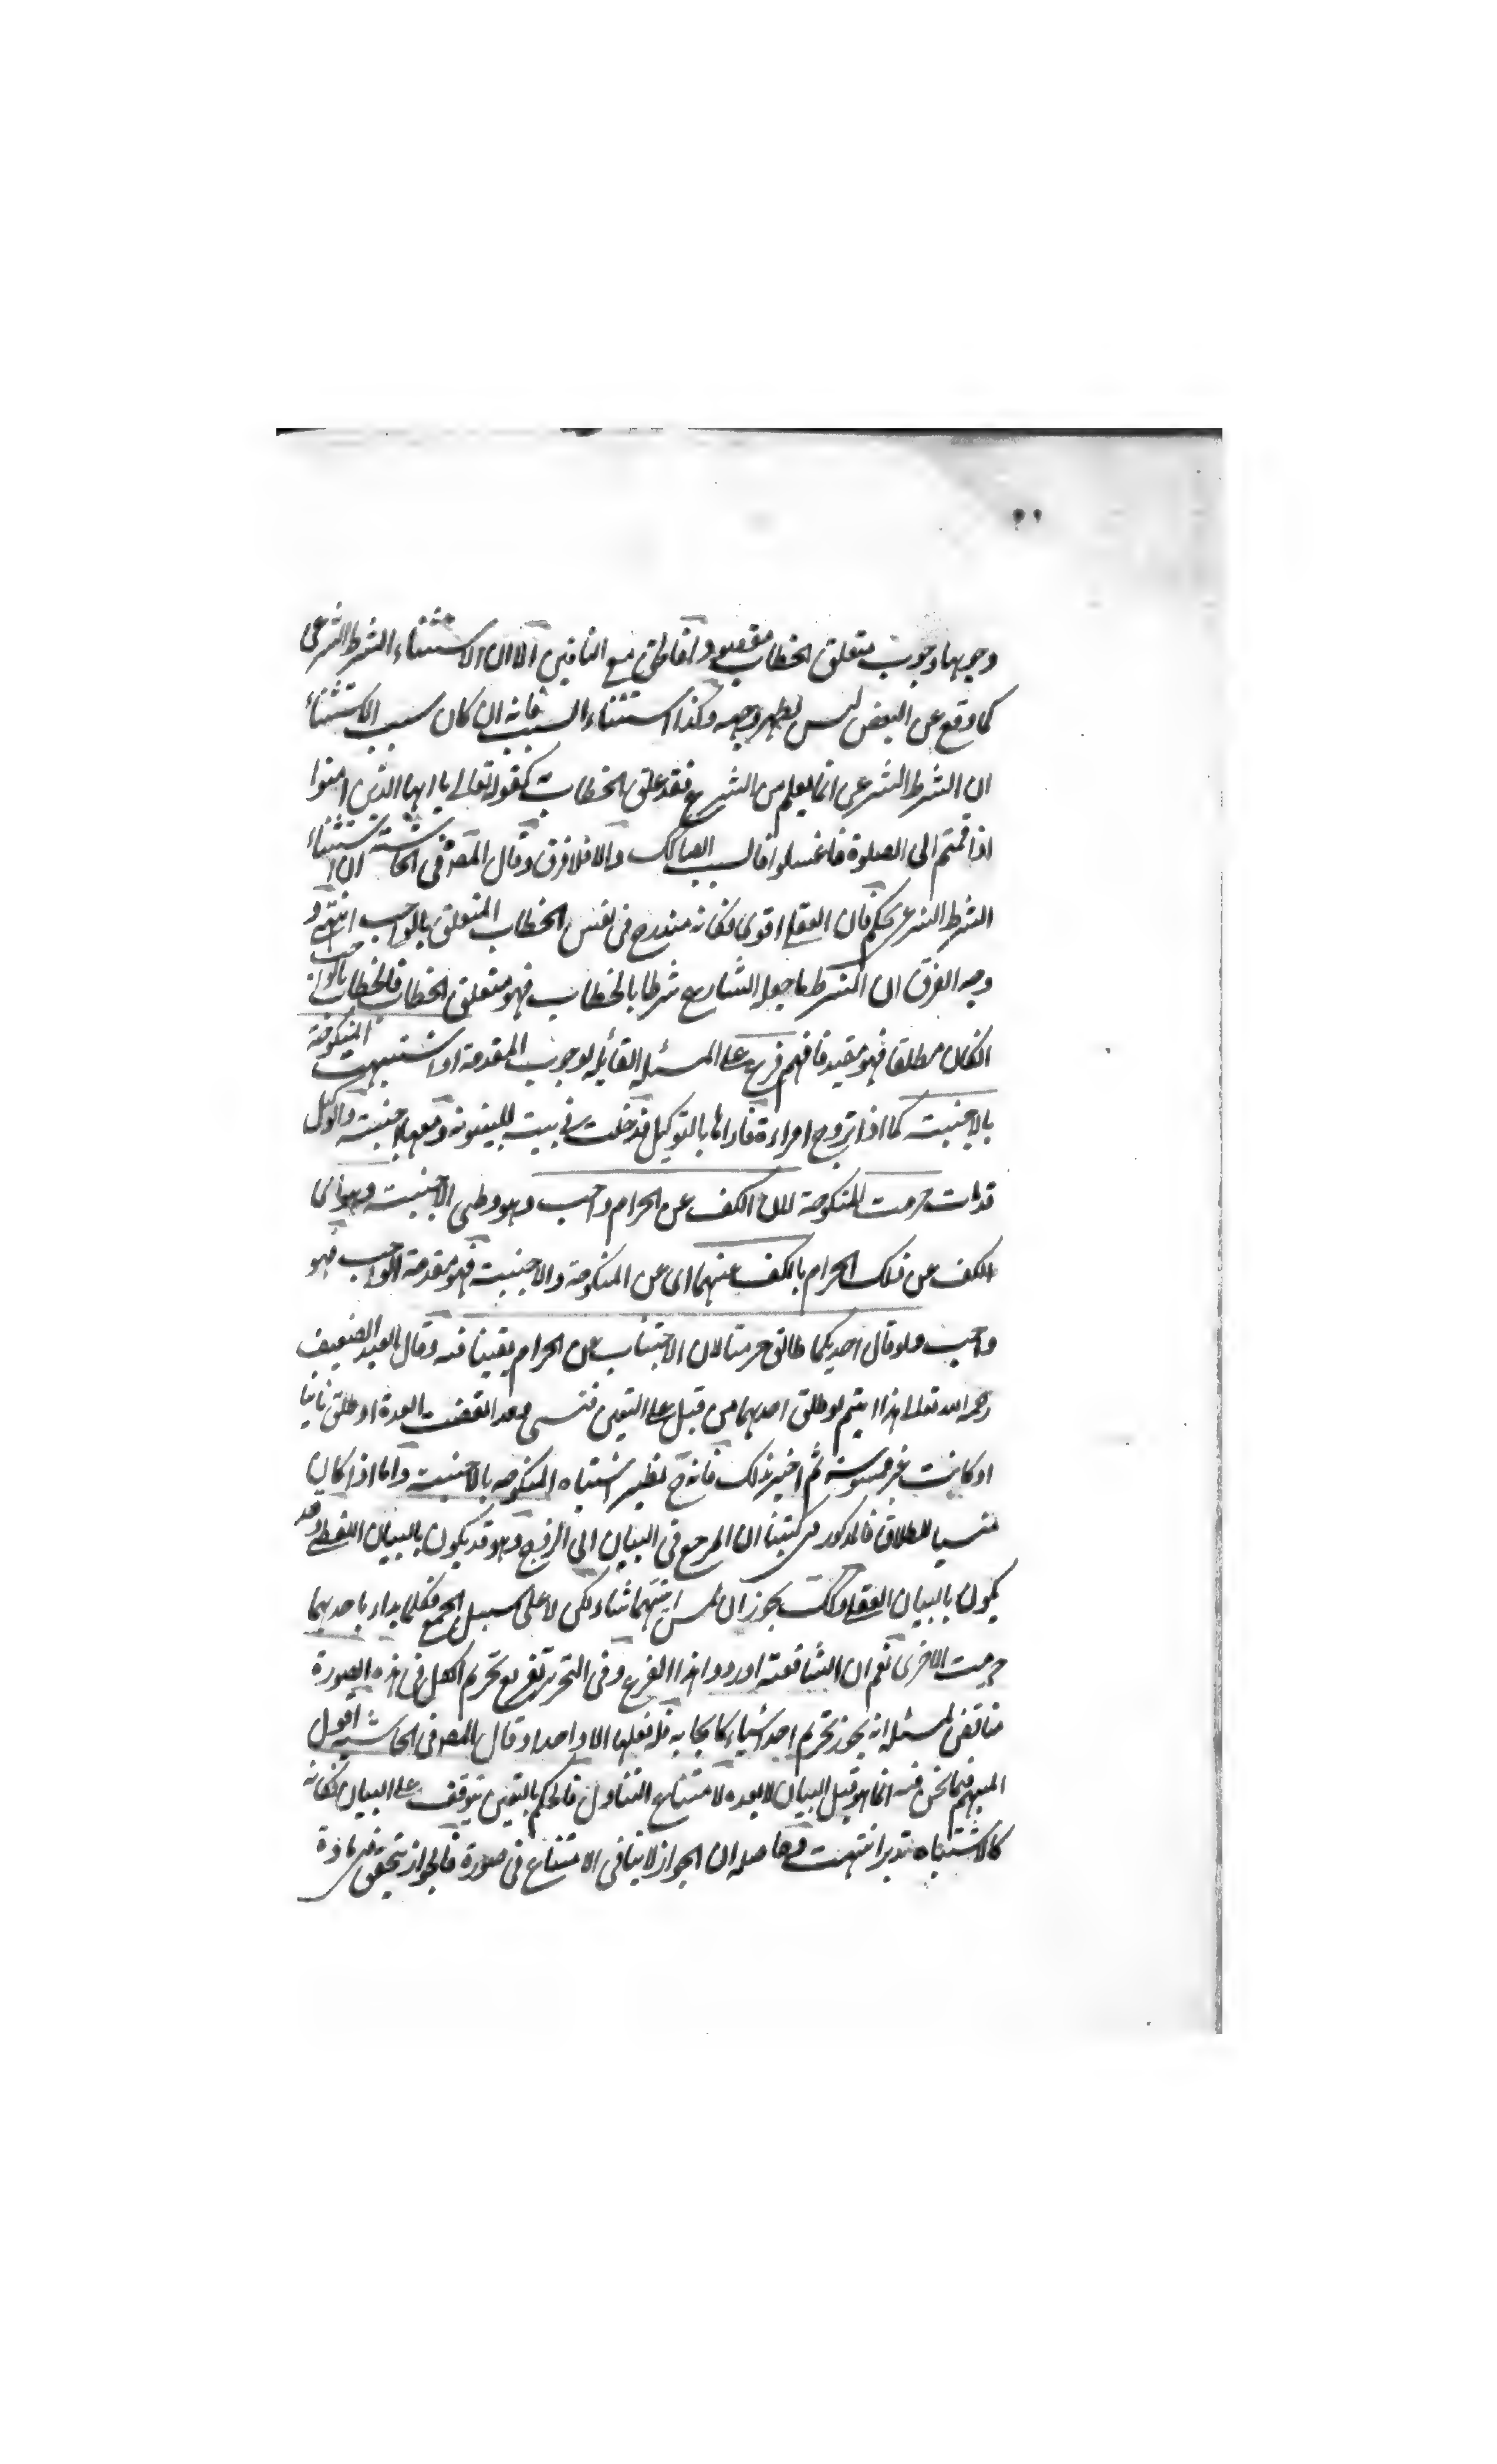 وجوبها وجوب متعلق الخطاب مقصودا فالحق مع النافين الا ان الاستثناء الشرط الشرعى
كما وقع عن البعض ليس يظهر وجهه وكذا استثناء السبب فانه ان كان سبب الاستثناء
ان الشرط الشرعى انما يعلم من الشرع فقد علق الخطاب به كقوله تعالى يا ايها الذين امنوا
اذا قمتم الى الصلوة فاغسلوا فالسبب ايضا كك والا فلا فرق وقال المصـ فى الحاشية ان استثناء
الشرط الشرعى تحكم فان العقلى اقوى فكانه مندرج فى نفس الخطاب المتعلق بالواجب انتهى و
وجه الفرق ان الشرط ما جعله الشارع شرطا بالخطاب فهو متعلق الخطاب فالخطاب بالواجب
انكان مطلقا فهو مقيد فافهم فرع على المسئلة القائلة بوجوب المقدمة اذا اشتبهت المنكوحة
بالاجنبية كما اذا تزوج امراءة فاراها بالتوكيل فدخلت فى بيت للبينونة ومعها اجنبية والوكيل
قد مات حرمت المنكوحة لان الكف عن الحرام واجب وهو وطى الاجنبية وهو اى
الكف عن ذلك الحرام بالكف عنهما اى عن المنكوحة والاجنبية فهو مقدمة الواجب فهو
واجب ولو قال احديكما طالق حرمتا لان الاجتناب عن الحرام يقينا فيه وقال العبد الضعيف
رحمه الله تعالى هذا يتم لو طلق احدهما من قبل على التعين فنسى وبعد انقضت العدة او طلق ثانيا
او كانت غير ممسوسة ثم اخبر بذلك فانه ح نظير اشتباه المنكوحة بالاجنبية واما اذا كان
منسيا للطلاق فالمذكور فى كتبنا ان المرجع فى البيان الى الزوج وهو قد يكون بالبيان اللفظى وقد
يكون بالبيان الفعلى وكك يجوز ان يمس ايتهما شاء لكن لا على سبيل الجمع فكلما بداء باحدهما
حرمت الاخرى نعم ان الشافعية اوردوا هذا الفرع وفى التحرير تفريع تحريم الكل فى هذه الصورة
مناقض لمسئلة انه يجوز تحريم احد اشياء كايجابه فله فعلها الا واحدا وقال المصـ فى الحاشية اقول
المبهم فيما نحن فيه انما هو قبل البيان لا بعده لامتناع التناول فالحكم بالتعين يتوقف على البيان فكانه
كالاشتباه تدبر انتهت وحاصله ان الجواز لا ينافى الامتناع فى صورة فالجواز يتحقق فى مادة